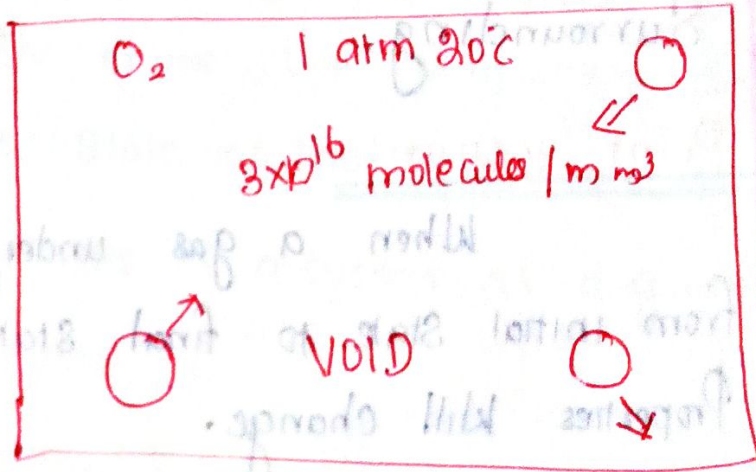 O₂ 1 atm 20°C
3×10¹⁶ molecules / mm³
VOID